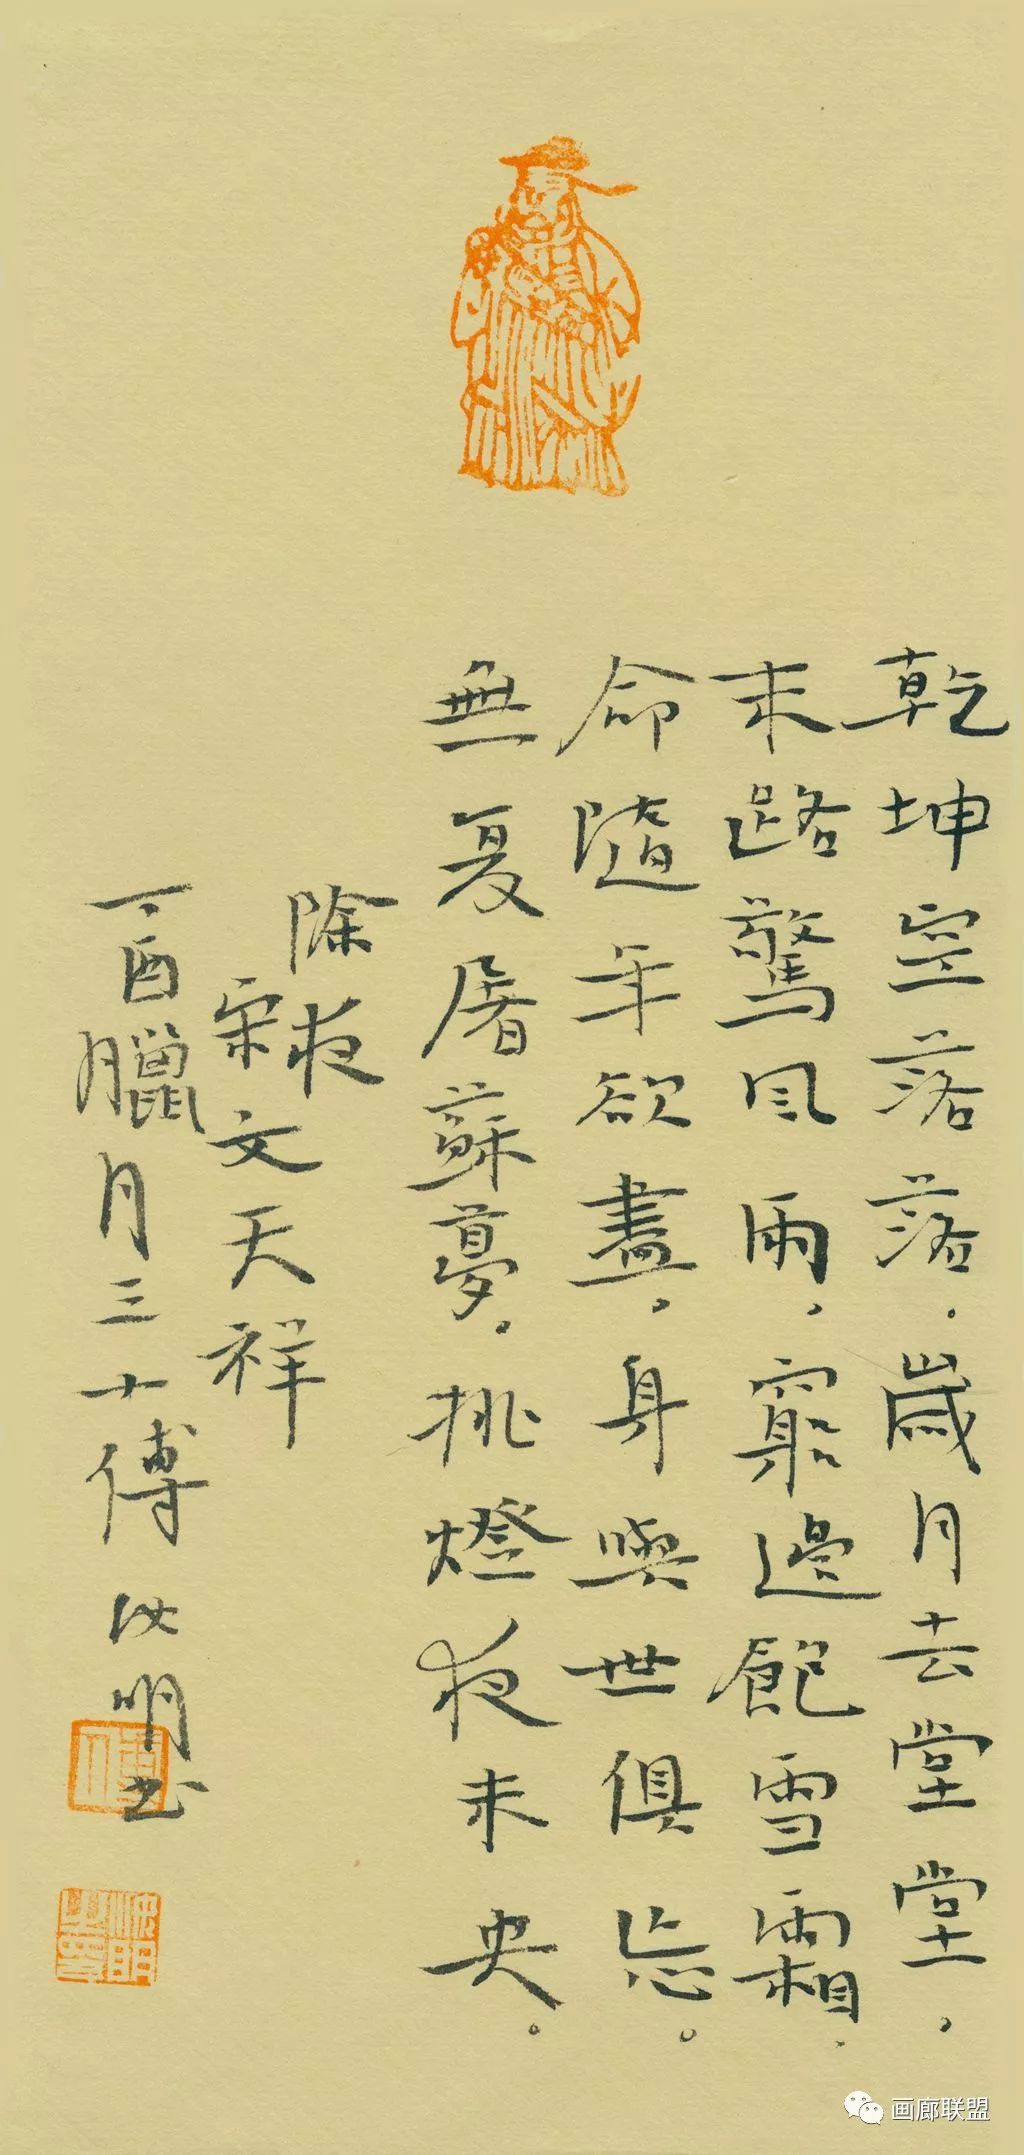 乾坤空落落，歲月去堂堂，
末路驚風雨，窮邊飽雪霜，
命隨年欲盡，身與世俱忘。
無復屠蘇夢，挑燈夜未央。
除夜
宋文天祥
丁酉臘月三十傅汝明书
画廊联盟